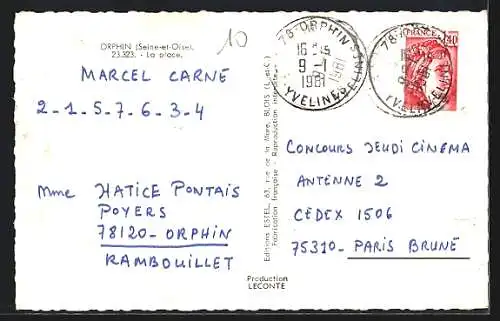 ORPHIN (Seine-et-Oise).
23.323. - La place.
10
MARCEL CARNE
2-1-5-7-6-3-4
Mme HATICE PONTAIS
POYERS
78120-ORPHIN
RAMBOUILLET
Editions ESTEL, 63, rue de la Mare, BLOIS (L.-et-C.)
Fabrication française - Reproduction interdite
Production
LECONTE
78-ORPHIN
16 H
9-1
1981
YVELINES
78-
YVELINES
FRANCE 1,40
CONCOURS JEUDI CINEMA
ANTENNE 2
CEDEX 1506
75310-PARIS BRUNE